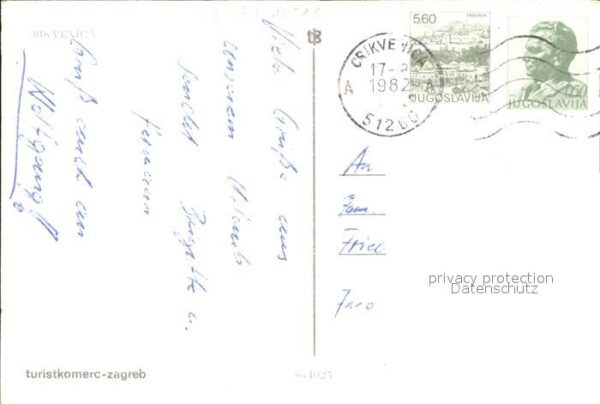 CRIKVENICA
Viele Grüße aus
unserem Urlaub
sendet Brigitte u.
Hermann
Gruß auch an
Wolfgang
TRAVNIK
5.60
JUGOSLAVIJA
0.50
JUGOSLAVIJA
CRIKVENICA
17-
1982
A A
51260
An
Fam.
privacy protection
Datenschutz
turistkomerc-zagreb
S-4025